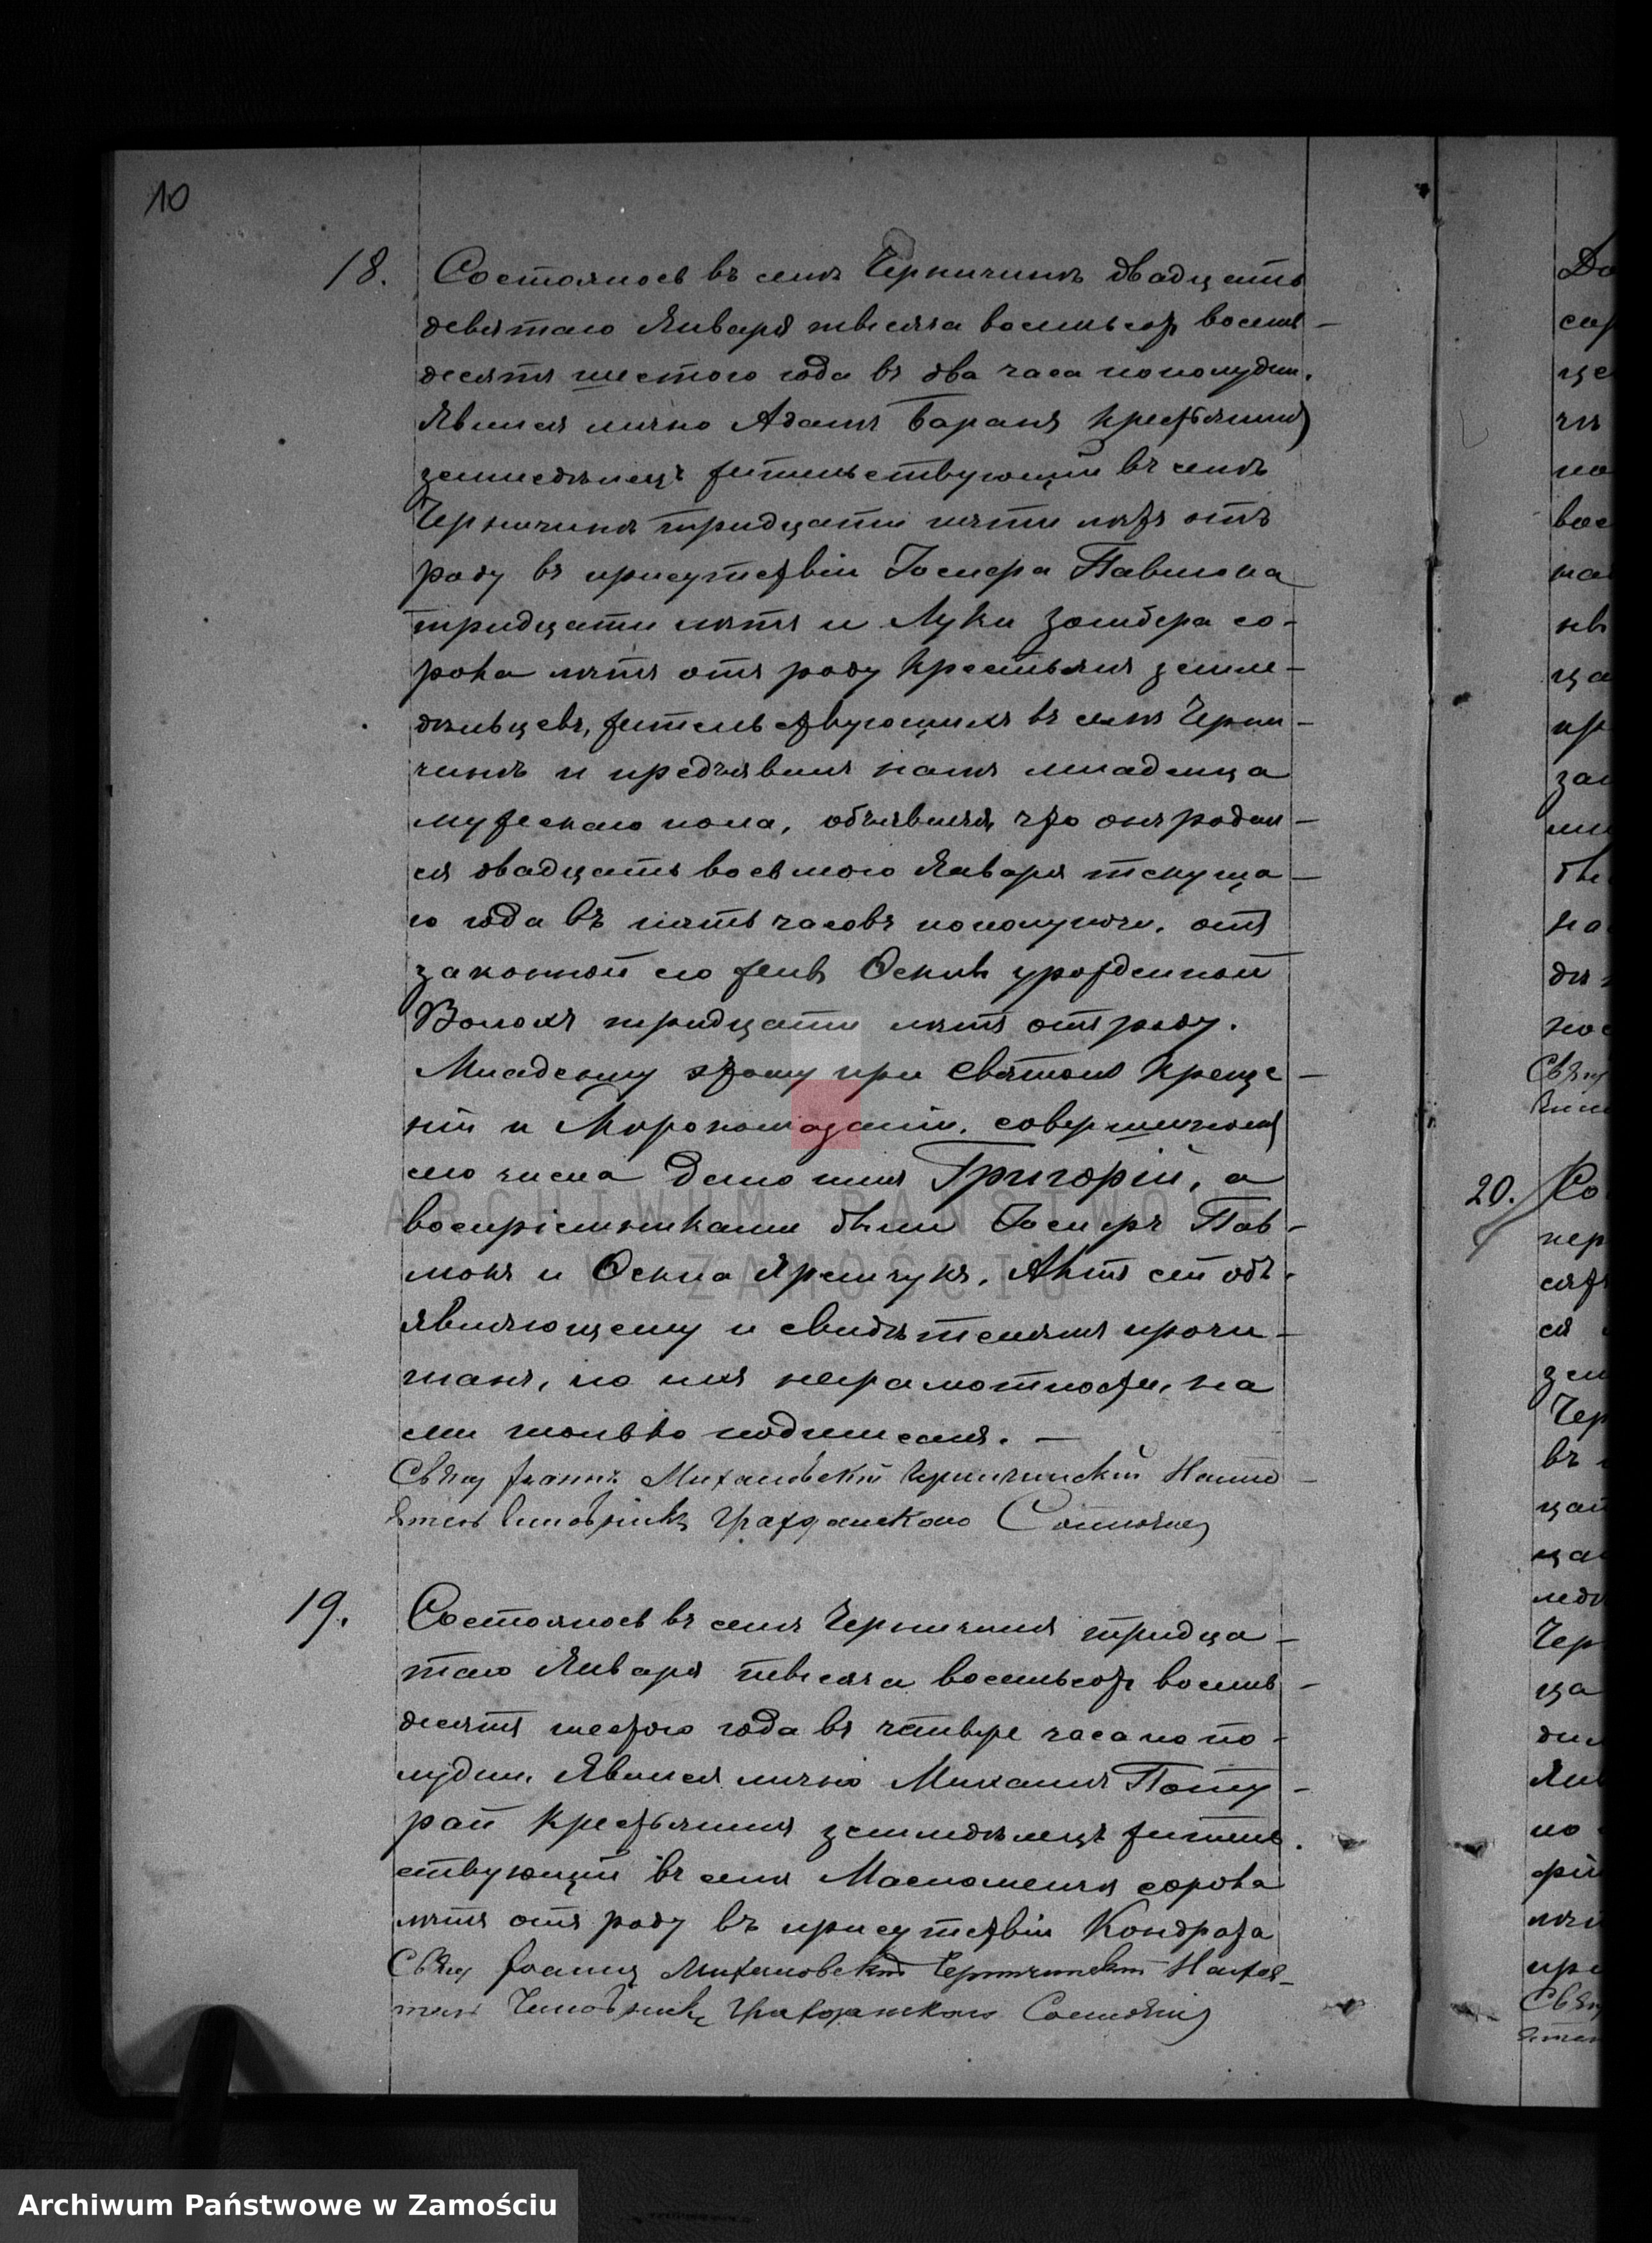 10
18. Состоялось въ селѣ Черничинѣ двадцать
девятаго Января тысяча восемьсот восемь-
десятъ шестого года въ два часа пополудни.
Явился лично Адамъ Баранъ крестьянинъ
земледѣлецъ жительствующій въ селѣ
Черничинѣ тридцати пяти лѣтъ отъ
роду въ присутствіи Іосифа Павлюка
тридцати лѣтъ и Луки Зомбера со-
рока лѣтъ отъ роду крестьянъ земле-
дѣльцевъ, жительствующихъ въ селѣ Черни-
чинѣ и предъявилъ намъ младенца
мужескаго пола, объявляя, что онъ родил-
ся двадцать восьмого Января текуща-
го года въ пять часовъ пополуночи, отъ
законной его жены Оскны урожденной
Волохъ тридцати лѣтъ отъ роду.
Младенцу этому при Святомъ Креще-
ніи и Миропомазаніи, совершенномъ
сего числа дано имя Григорій, а
воспріемниками были Іосифъ Пав-
люкъ и Оскна Яремчукъ. Актъ сей объ-
являющему и свидѣтелямъ прочи-
танъ, по ихъ неграмотности, на
ми только подписанъ. —
Свящ Іоаннъ Михаловскій Черничинскій Насто-
ятель Чиновникъ Гражданскаго Состоянія
19. Состоялось въ селѣ Черничинѣ тридца-
таго Января тысяча восемьсот восемь-
десятъ шестого года въ четыре часа попо-
лудни. Явился лично Михаилъ Поту-
рай крестьянинъ земледѣлецъ житель-
ствующій въ селѣ Масломенчѣ сорока
лѣтъ отъ роду въ присутствіи Кондрата
Свящ Іоаннъ Михаловскій Черничинскій Настоя-
тель Чиновникъ Гражданскаго Состоянія
20. Со
ARCHIWUM PAŃSTWOWE
W ZAMOŚCIU
Archiwum Państwowe w Zamościu